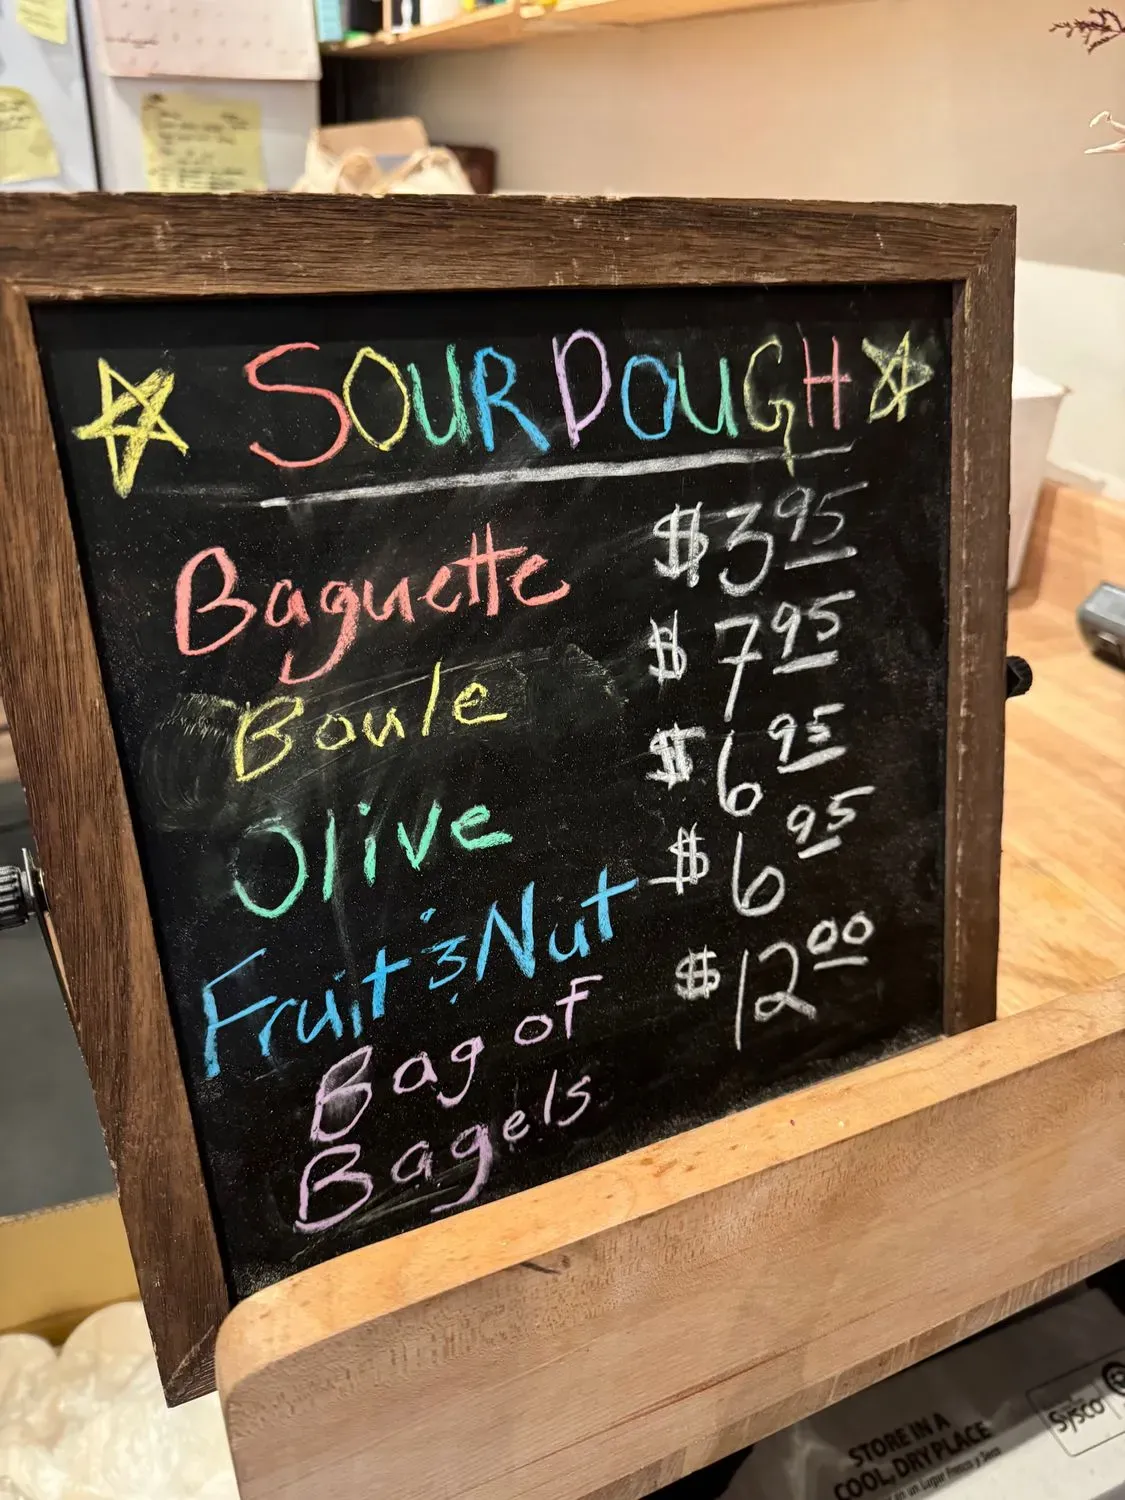 SOURDOUGH
Baguette $3.95
Boule $7.95
Olive $6.95
Fruit & Nut $6.95
Bag of $12.00
Bagels
STORE IN A
COOL, DRY PLACE
en un Lugar Fresco y Seco
Sysco